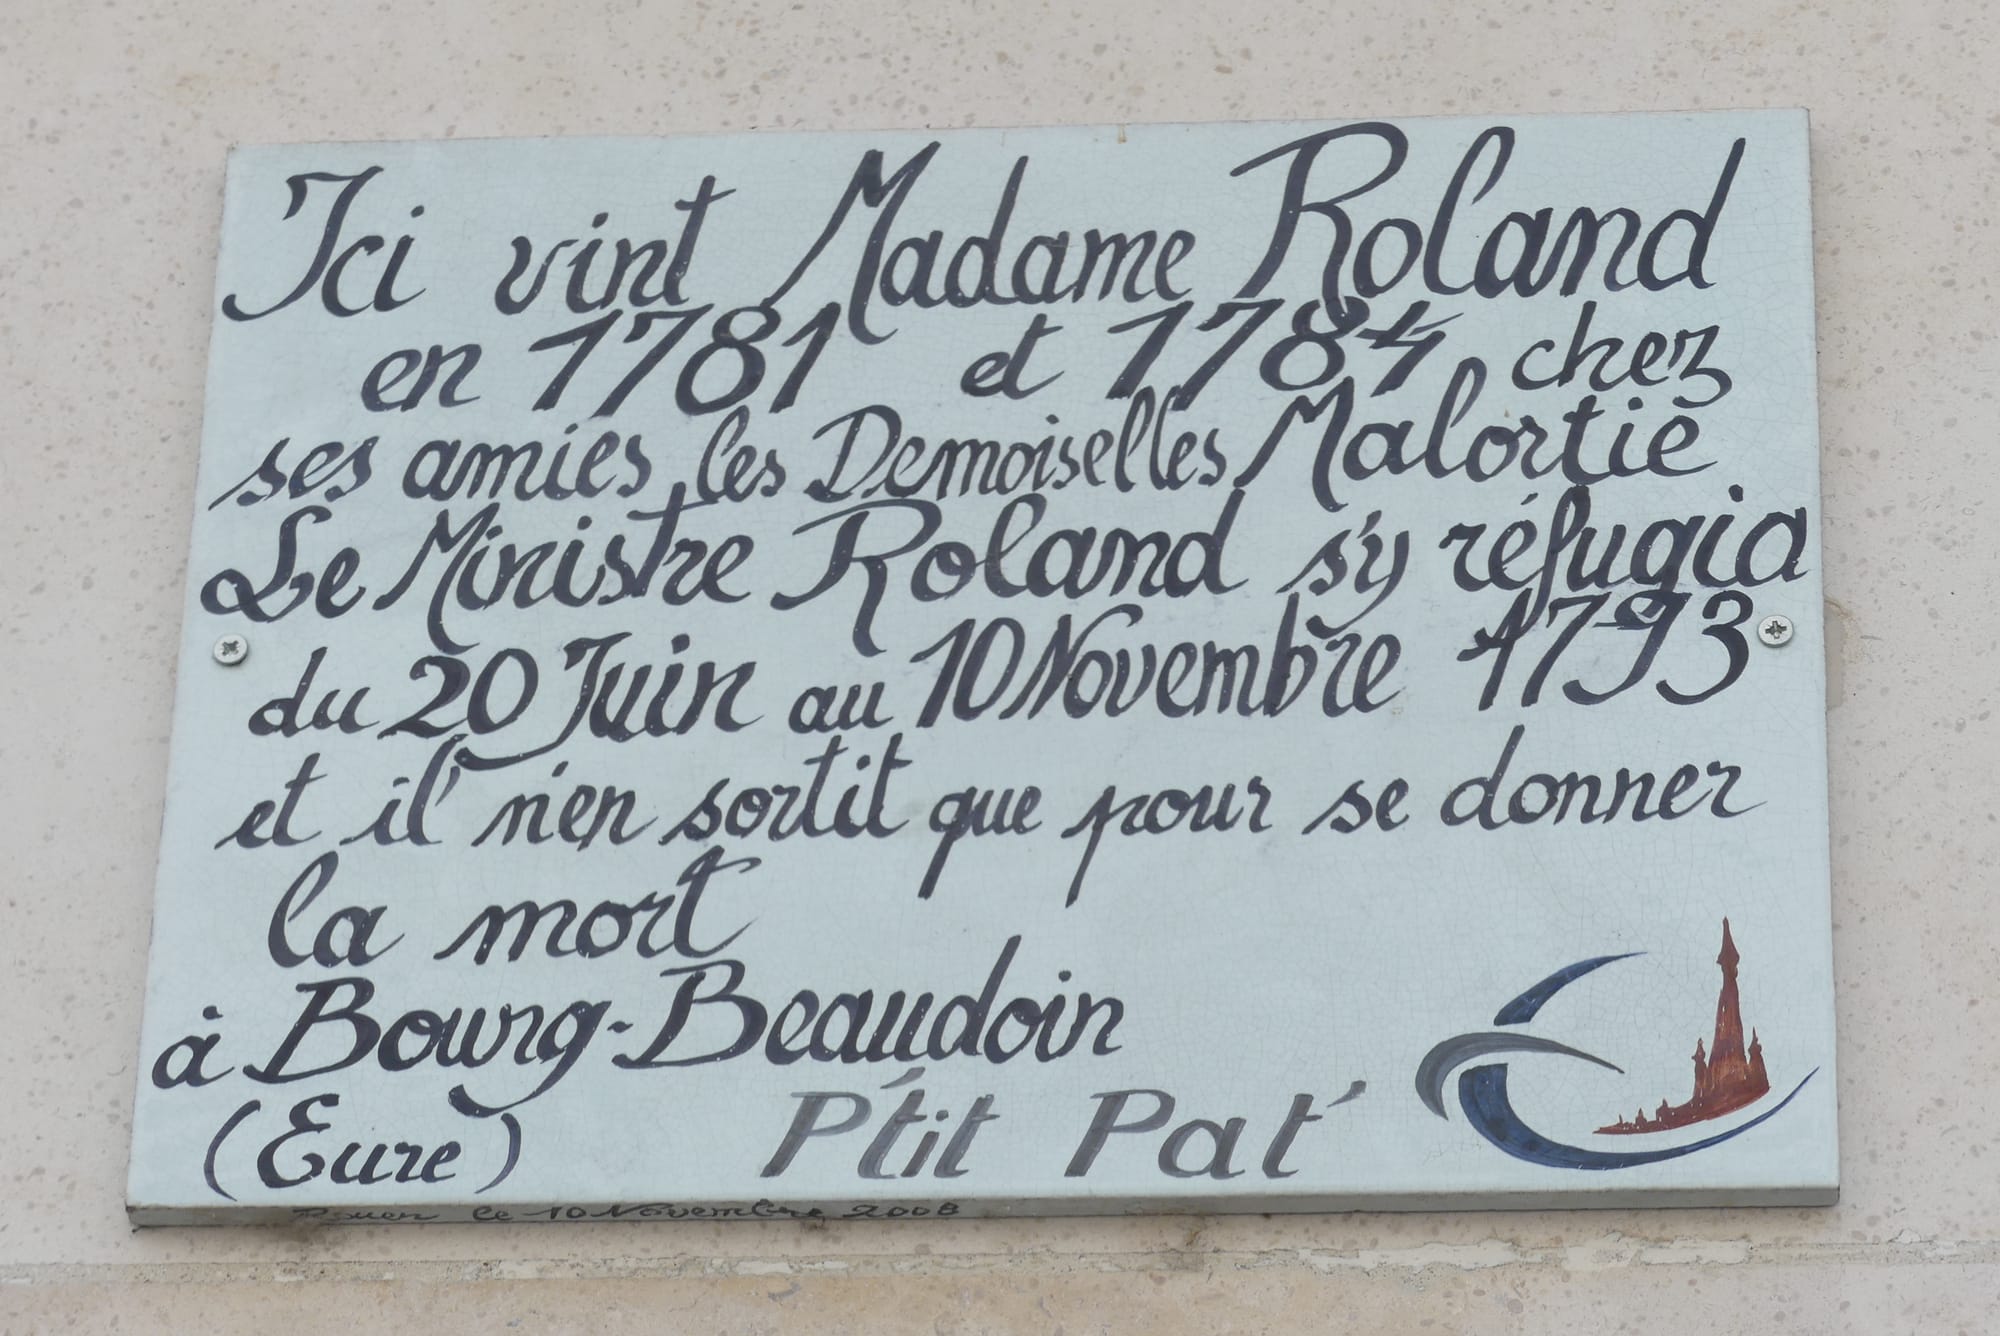 Ici vint Madame Roland
en 1781 et 1784 chez
ses amies les Demoiselles Malortie
Le Ministre Roland s'y réfugia
du 20 Juin au 10 Novembre 1793
et il n'en sortit que pour se donner
la mort
à Bourg-Beaudoin
(Eure)
P'tit Pat'
Rouen le 10 Novembre 2008